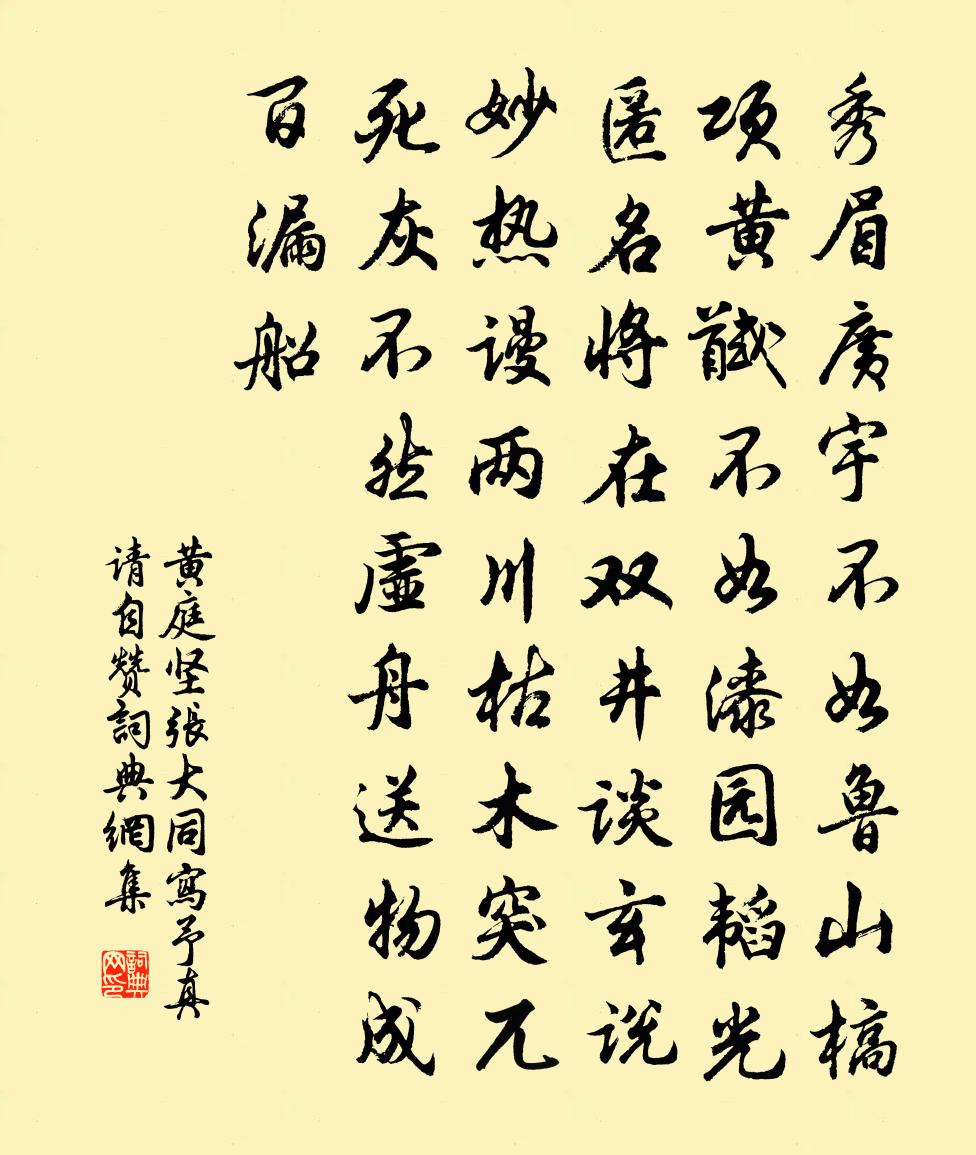 秀眉廣宇不如鲁山槁
项黄馘不如漆园韬光
匿名将在双井谈玄说
妙热谩两川枯木突兀
死灰不然虚舟送物成
百漏船
黄庭坚張大同寫予真
请自赞詞典網集
詞典网印